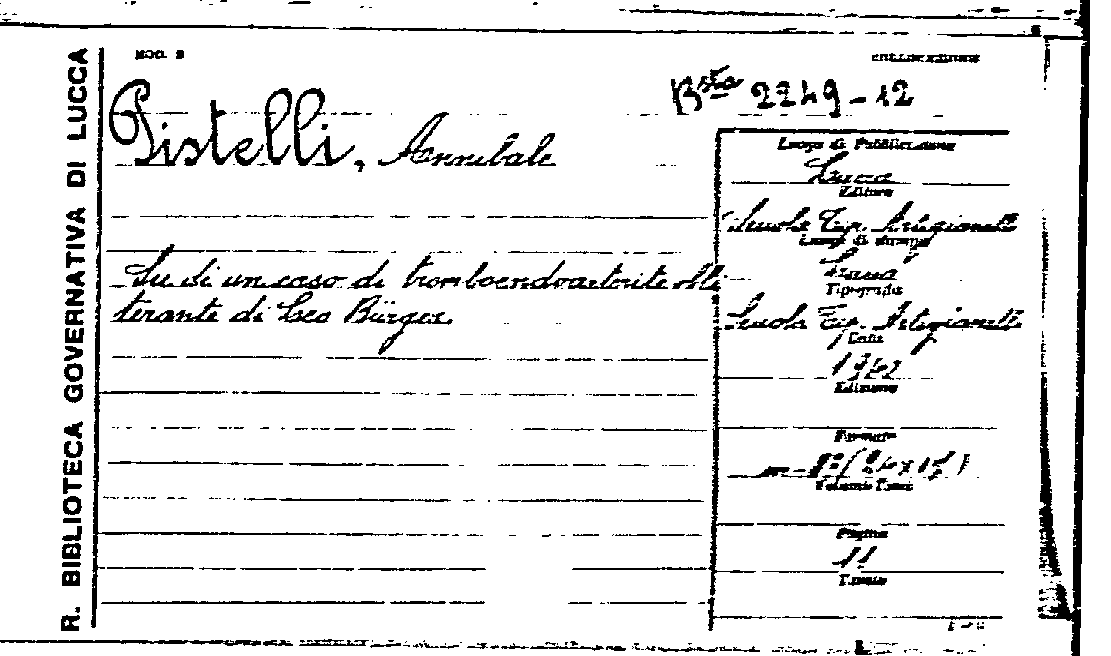 R. BIBLIOTECA GOVERNATIVA DI LUCCA
MOD. 2
COLLOCAZIONE
Bsta 2249-12
Pistelli, Annibale
Su di un caso di tromboendoarterite obli
terante di Leo Bürger
Luogo di Pubblicazione
Lucca
Editore
Scuola Tip. Artigianelli
Luogo di stampa
Lucca
Tipografia
Scuola Tip. Artigianelli
Data
1942
Edizione
Formato
in-8°(24x17)
Pagine
11